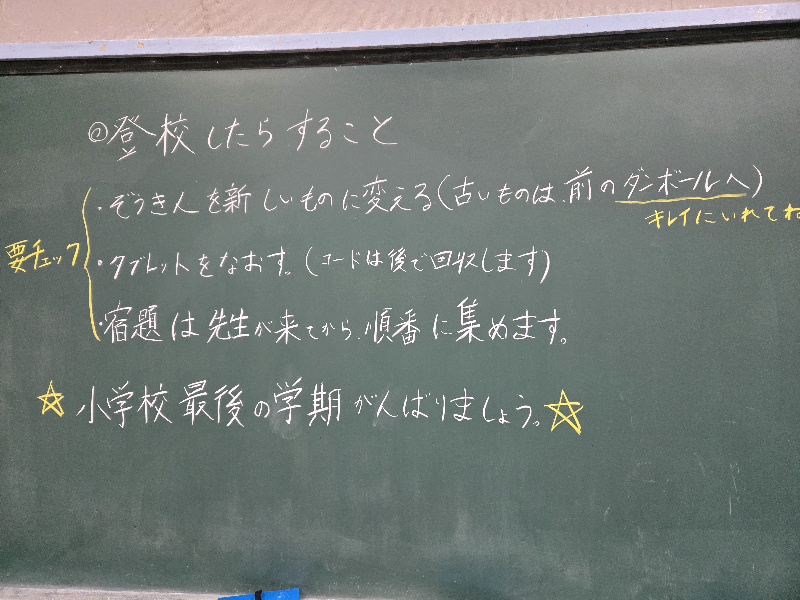 ◎登校したらすること
・ぞうきんを新しいものに変える(古いものは、前のダンボールへ)
キレイにいれてね
要チェック
・タブレットをなおす。(コードは後で回収します)
・宿題は先生が来てから、順番に集めます。
☆小学校最後の学期がんばりましょう。☆